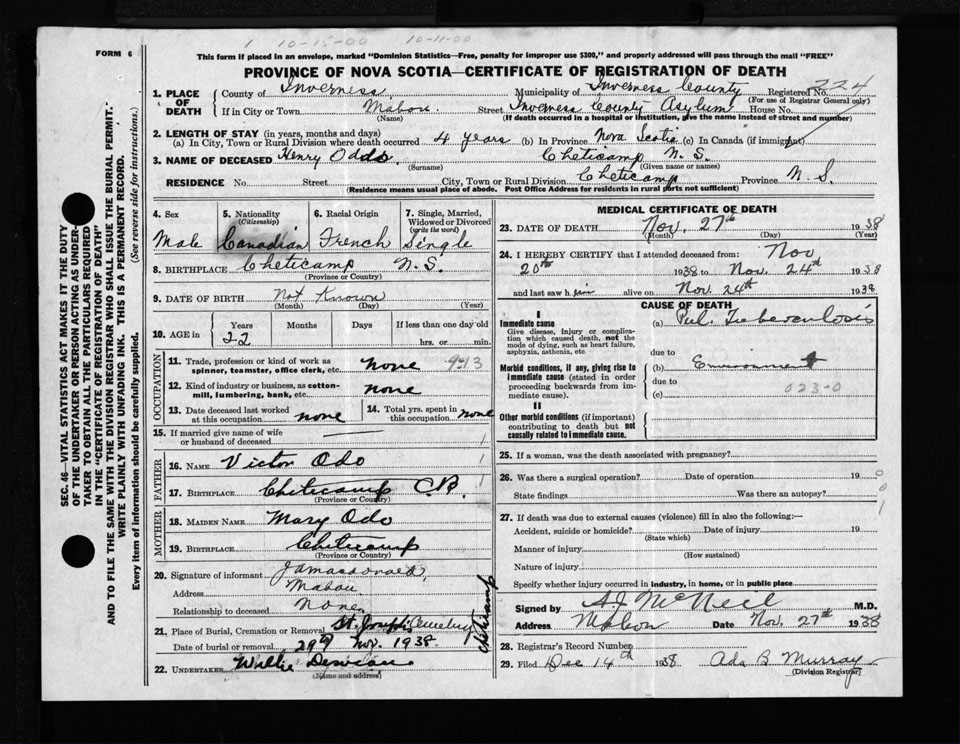 1 10-15-00 10-11-00
FORM 6
This form if placed in an envelope, marked "Dominion Statistics—Free, penalty for improper use $300," and properly addressed will pass through the mail "FREE"
PROVINCE OF NOVA SCOTIA—CERTIFICATE OF REGISTRATION OF DEATH
SEC. 46—VITAL STATISTICS ACT MAKES IT THE DUTY
OF THE UNDERTAKER OR PERSON ACTING AS UNDER-
TAKER TO OBTAIN ALL THE PARTICULARS REQUIRED
IN THE "CERTIFICATE OF REGISTRATION OF DEATH"
AND TO FILE THE SAME WITH THE DIVISION REGISTRAR WHO SHALL ISSUE THE BURIAL PERMIT.
WRITE PLAINLY WITH UNFADING INK. THIS IS A PERMANENT RECORD.
Every item of information should be carefully supplied. (See reverse side for instructions.)
1. PLACE OF DEATH County of Inverness Municipality of Inverness County Registered No. 224
(For use of Registrar General only)
If in City or Town Mabou Street Inverness County Asylum House No.
(Name) (If death occurred in a hospital or institution, give the name instead of street and number)
2. LENGTH OF STAY (in years, months and days)
(a) In City, Town or Rural Division where death occurred 4 years (b) In Province Nova Scotia (c) In Canada (if immigrant)
3. NAME OF DECEASED Henry Oddo Cheticamp N. S.
(Surname) (Given name or names)
RESIDENCE No. Street City, Town or Rural Division Cheticamp Province N. S.
(Residence means usual place of abode. Post Office Address for residents in rural parts not sufficient)
4. Sex 5. Nationality (Citizenship) 6. Racial Origin 7. Single, Married, Widowed or Divorced (write the word)
Male Canadian French Single
8. BIRTHPLACE Cheticamp N. S.
(Province or Country)
9. DATE OF BIRTH Not Known
(Month) (Day) (Year)
10. AGE in Years Months Days If less than one day old
22 hrs. or min.
OCCUPATION
11. Trade, profession or kind of work as spinner, teamster, office clerk, etc. none
12. Kind of industry or business, as cotton-mill, lumbering, bank, etc. none
13. Date deceased last worked at this occupation none 14. Total yrs. spent in this occupation none
15. If married give name of wife or husband of deceased
FATHER
16. NAME Victor Odo
17. BIRTHPLACE Cheticamp C.B.
(Province or Country)
MOTHER
18. MAIDEN NAME Mary Odo
19. BIRTHPLACE Cheticamp
(Province or Country)
20. Signature of informant
Address Mabou
Relationship to deceased None
21. Place of Burial, Cremation or Removal St. Joseph Cemetery Cheticamp
Date of burial or removal 29th Nov. 1938.
22. UNDERTAKER Willie
(Name and address)
MEDICAL CERTIFICATE OF DEATH
23. DATE OF DEATH Nov. 27th 1938
(Month) (Day) (Year)
24. I HEREBY CERTIFY that I attended deceased from Nov
20th 1938 to Nov. 24th 1938
and last saw him alive on Nov. 24th 1938
CAUSE OF DEATH
I
Immediate cause
Give disease, injury or complication which caused death, not the mode of dying, such as heart failure, asphyxia, asthenia, etc.
(a) Pul. Tuberculosis
due to
Morbid conditions, if any, giving rise to immediate cause (stated in order proceeding backwards from immediate cause).
(b) Environment
due to 023-0
(c)
II
Other morbid conditions (if important) contributing to death but not causally related to immediate cause.
25. If a woman, was the death associated with pregnancy?
26. Was there a surgical operation? Date of operation 19
State findings Was there an autopsy?
27. If death was due to external causes (violence) fill in also the following:—
Accident, suicide or homicide? Date of injury 19
(State which)
Manner of injury
(How sustained)
Nature of injury
Specify whether injury occurred in industry, in home, or in public place
Signed by A.J McNeil M.D.
Address Mabou Date Nov. 27th 1938
28. Registrar's Record Number
29. Filed Dec 14th 1938 Ada B Murray
(Division Registrar)